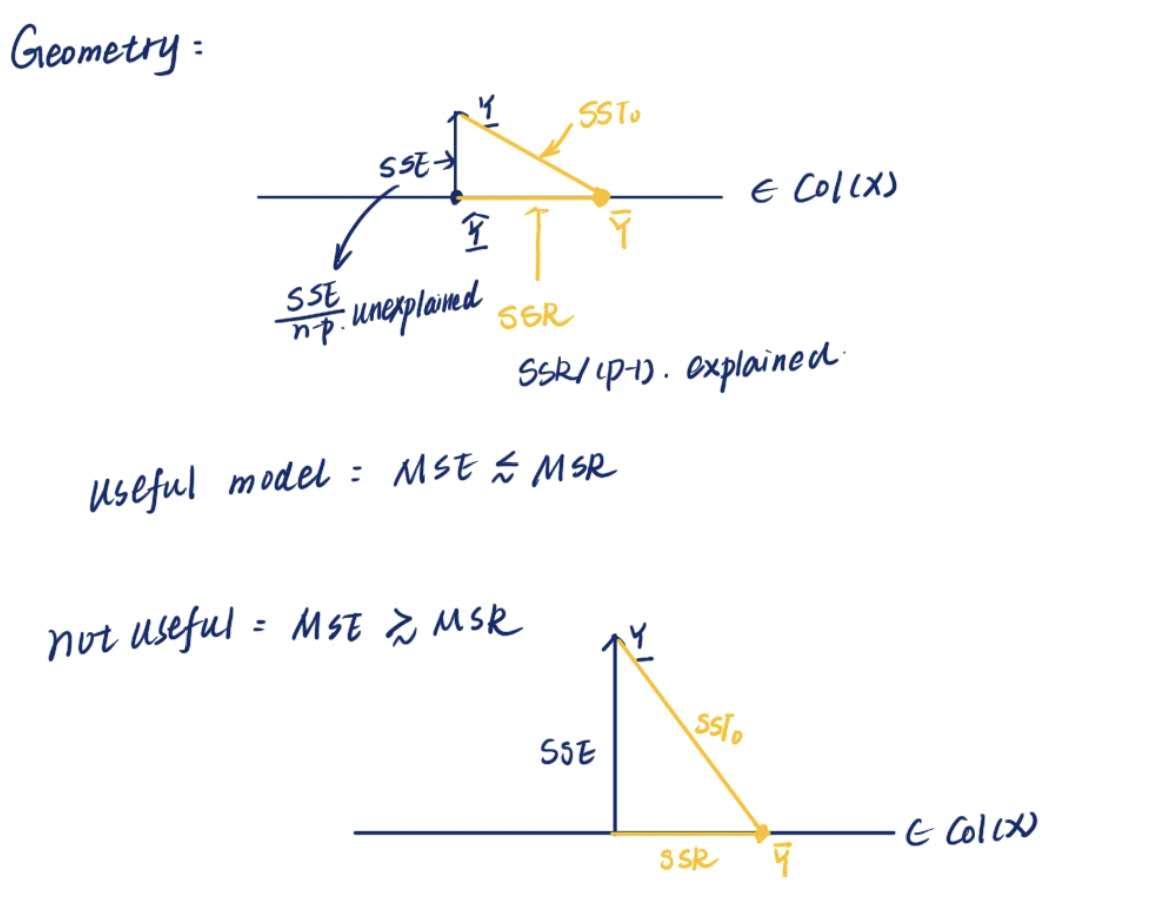 Geometry:
Y
SSTo
SSE→
∈ Col(X)
Ŷ
Ȳ
SSE/n-p. unexplained
SSR
SSR/(p-1). explained.
useful model: MSE ⪅ MSR
not useful: MSE ⪆ MSR
Y
SSTo
SSE
∈ Col(X)
SSR
Ȳ